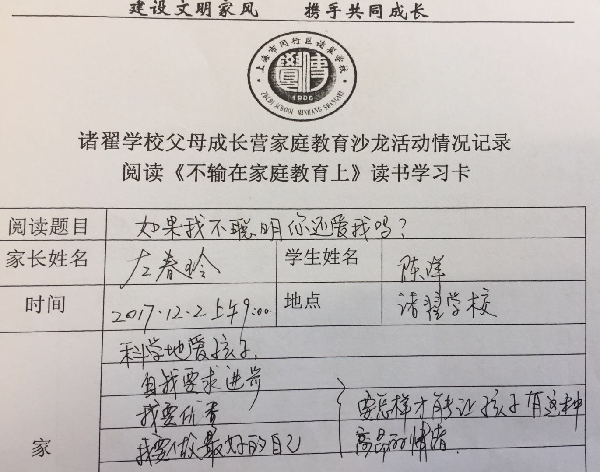 建设文明家风 携手共同成长
上海市闵行区诸翟学校
1905
ZHUDI SCHOOL MINHANG SHANGHAI
诸翟学校父母成长营家庭教育沙龙活动情况记录
阅读《不输在家庭教育上》读书学习卡
阅读题目 如果我不聪明你还爱我吗?
家长姓名 左春玲 学生姓名 陈洋
时间 2017.12.2上午9:00 地点 诸翟学校
科学地爱孩子,
自我要求进步
我要优秀 要怎样才能让孩子有这种
家 我要做最好的自己 高昂的情绪